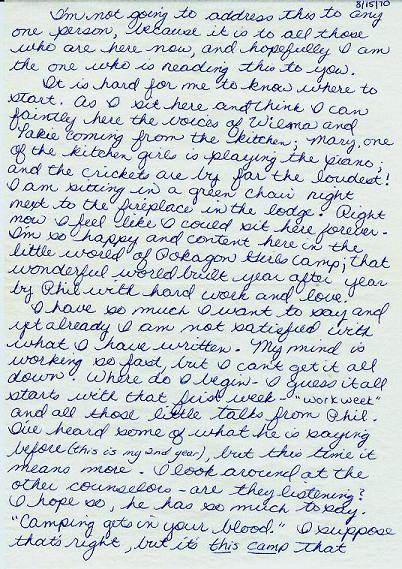 8/15/70
I'm not going to address this to any
one person, because it is to all those
who are here now, and hopefully I am
the one who is reading this to you.
It is hard for me to know where to
start. As I sit here and think I can
faintly here the voices of Wilma and
Lakie coming from the kitchen; Mary, one
of the kitchen girls is playing the piano;
and the crickets are by far the loudest!
I am sitting in a green chair right
next to the fireplace in the lodge. Right
now I feel like I could sit here forever.
I'm so happy and content here in the
little world of Pokagon Girls camp; that
wonderful world built year after year
by Phil with hard work and love.
I have so much I want to say and
yet already I am not satisfied with
what I have written. My mind is
working so fast, but I can't get it all
down. Where do I begin - I guess it all
starts with that first week - "work week"
and all those little talks from Phil.
I've heard some of what he is saying
before (this is my 2nd year), but this time it
means more. I look around at the
other counselors - are they listening?
I hope so, he has so much to say.
"Camping gets in your blood." I suppose
that's right, but it's this camp that